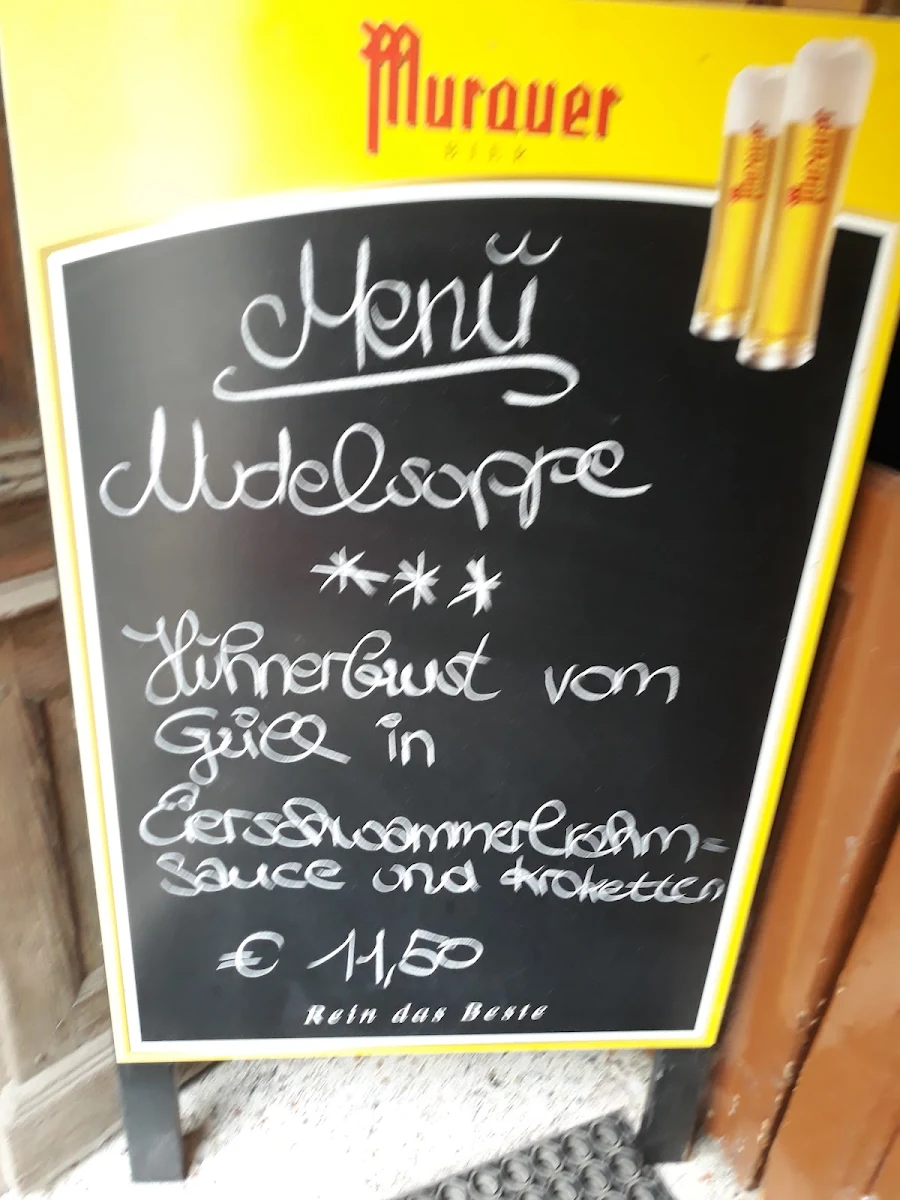 Murauer
BIER
Menü
Nudelsuppe
***
Hühnerbrust vom
Grill in
Eierschwammerlrahm-
sauce und Kroketten
€ 11,50
Rein das Beste